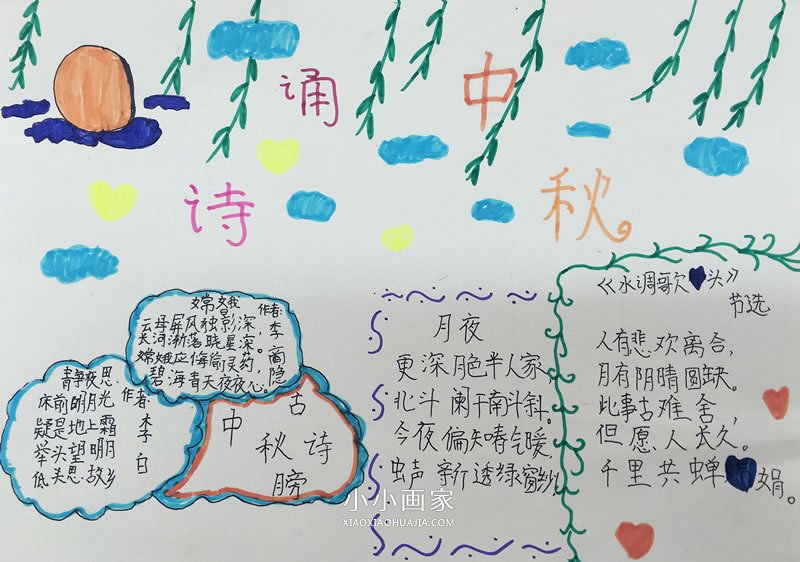 诵中
诗秋
嫦娥
作者:李商隐
云母屏风独影深,
长河渐落晓星深。
嫦娥应悔偷灵药,
碧海青天夜夜心。
静夜思
作者:李白
床前明月光
疑是地上霜
举头望明月
低头思故乡
中秋古诗
膀
月夜
更深月色半人家,
北斗阑干南斗斜。
今夜偏知春气暖,
虫声新透绿窗纱。
《水调歌头》
节选
人有悲欢离合,
月有阴晴圆缺。
此事古难舍,
但愿人太久。
千里共蝉娟。
小小画家
XIAOXIAOHUAJIA.COM